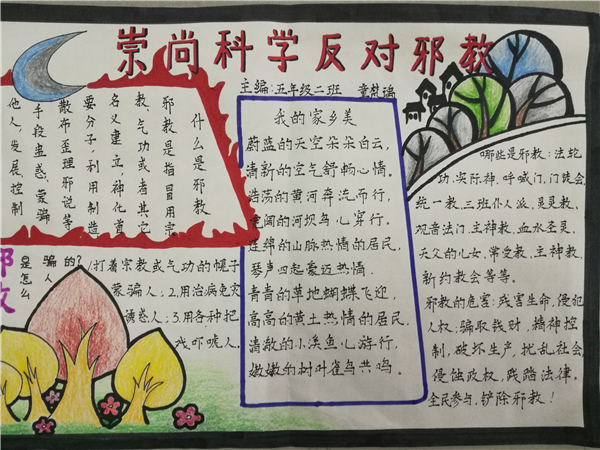 崇尚科学反对邪教
主编:五年级二班
什么是邪教
邪教是指冒用宗
教、气功或者其它
名义建立,神化首
要分子,利用制造
散布歪理邪说等
手段蛊惑、蒙骗
他人,发展、控制
邪教
是怎么
骗人
的?
1.打着宗教或气功的幌子
蒙骗人;2.用治病免灾
诱惑人;3.用各种把
戏吓唬人.
我的家乡美
蔚蓝的天空朵朵白云,
清新的空气舒畅心情。
浩荡的黄河奔流而行,
宽阔的河坝鸟心穿行。
连绵的山脉热情的居民,
琴声四起豪迈热情.
青青的草地蝴蝶飞迎,
高高的黄土热情的居民,
清澈的小溪鱼心游行,
嫩嫩的树叶雀鸟共鸣。
哪些是邪教:法轮
功、实际神、呼喊门、门徒会
统一教、三班仆人派、灵灵教、
观音法门、主神教、血水圣灵、
天父的儿女、常受教、主神教、
新约教会等等。
邪教的危害:残害生命,侵犯
人权;骗取钱财,精神控
制,破坏生产,扰乱社会,
侵蚀政权,践踏法律。
全民参与,铲除邪教!